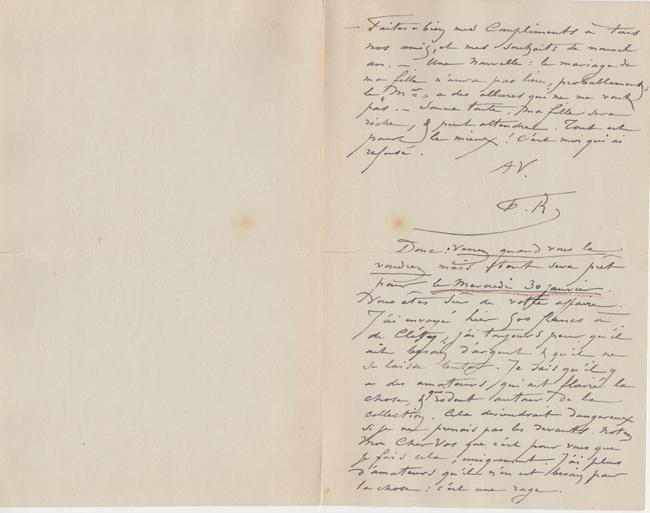 — Faites bien mes Compliments à tous
nos amis, et mes souhaits de nouvel
an. — Une nouvelle : le mariage de
ma fille n'aura pas lieu, probablement,
le M. a des allures qui ne me vont
pas. — Somme toute, ma fille sera
riche, & peut attendre. Tout est
pour le mieux ! C'est moi qui ai
refusé.
AV.
F. R
Donc : venez quand vous le
voudrez mais tout sera prêt
pour le Mercredi 30 janvier.
Vous êtes sûr de votre affaire.
J'ai envoyé hier 500 francs à
de j'ai toujours peur qu'il
ait besoin d'argent & qu'il ne
se laisse tenter. Je sais qu'il y
a des amateurs, qui ont flairé la
chose, & qui rodent autour de la
collection. Cela deviendrait dangereux
si je ne prenais pas les devants. Notez
mon Cher que c'est pour vous que
je fais cela, uniquement. J'ai plus
d'amateurs qu'il n'en est besoin pour
la chose : c'est une rage.